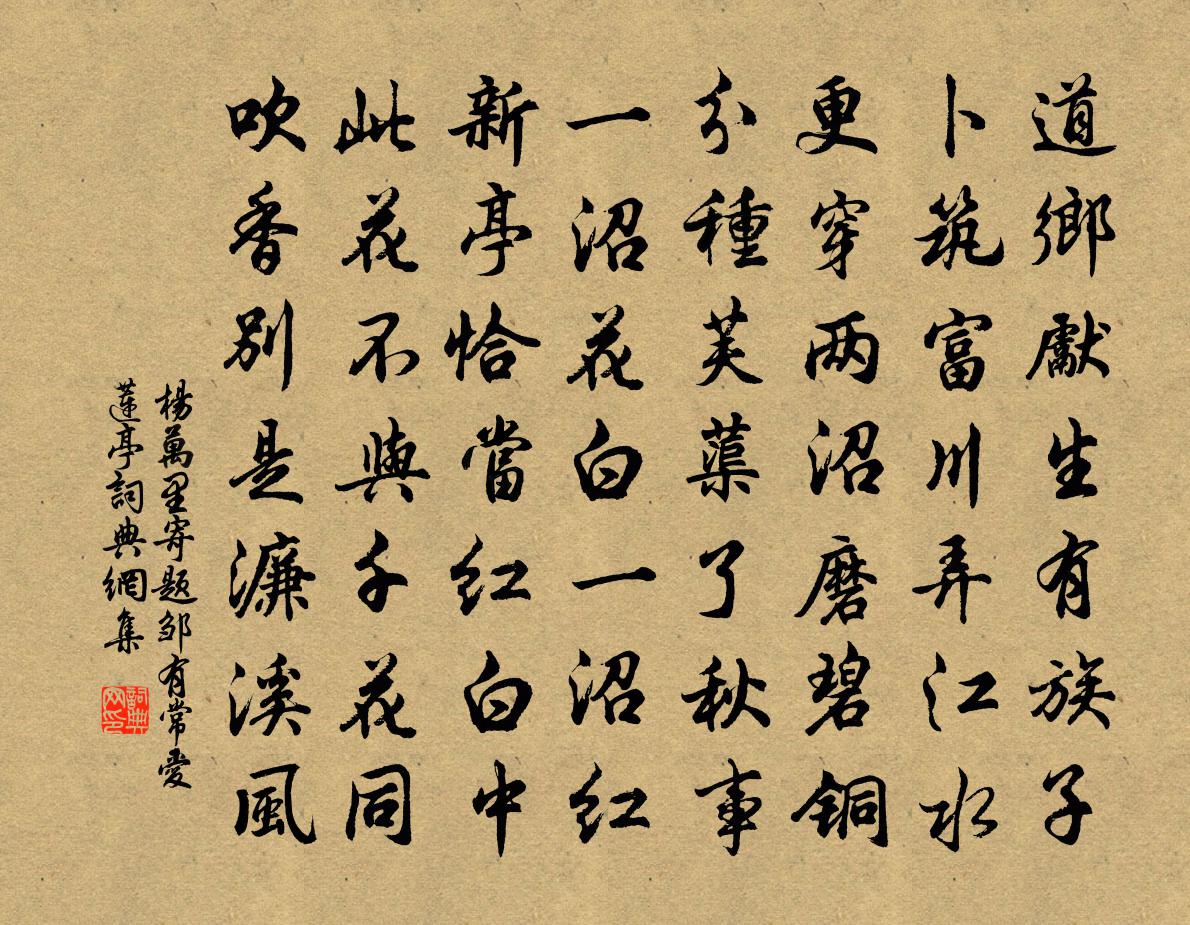 道鄉獻生有族子
卜筑富川弄江水
更穿两沼磨碧铜
分種芙蕖了秋事
一沼花白一沼红
新亭恰當红白中
此花不與千花同
吹香别是濂溪風
楊萬里寄题邹有常愛
蓮亭詞典網集
詞典
网印